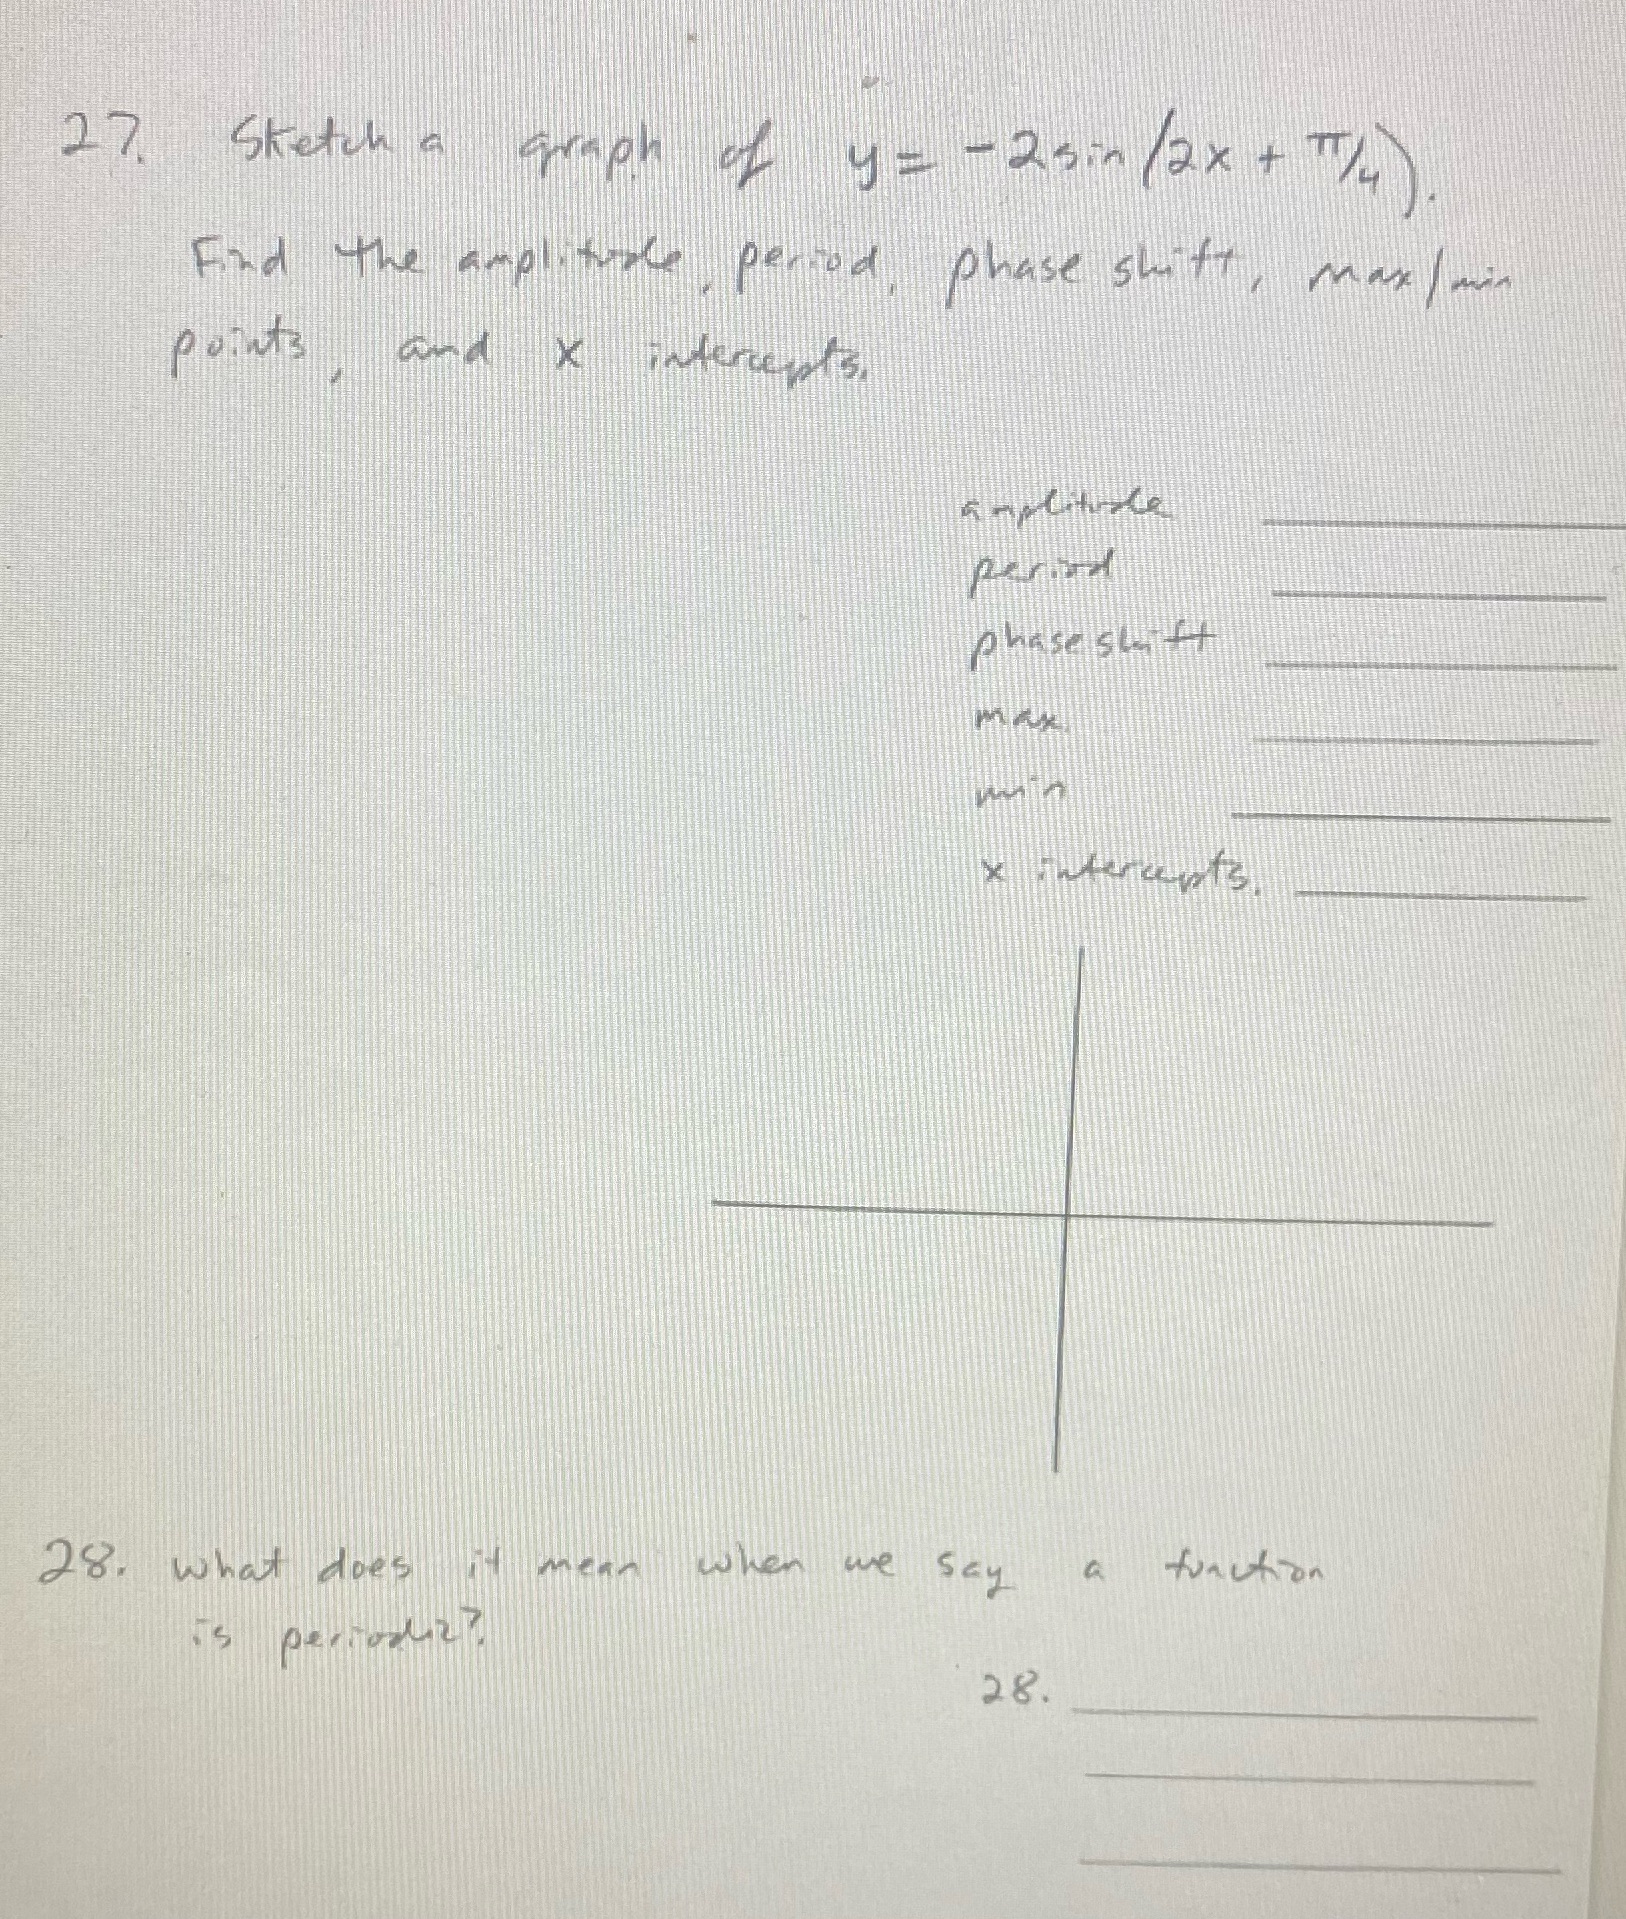 27. Sketch a graph of y = -2 sin (2x + π/4).
Find the amplitude, period, phase shift, max/min
points, and x intercepts.
amplitude
period
phase shift
max.
min
x intercepts.
28. what does it mean when we say a function
is periodic?
28.